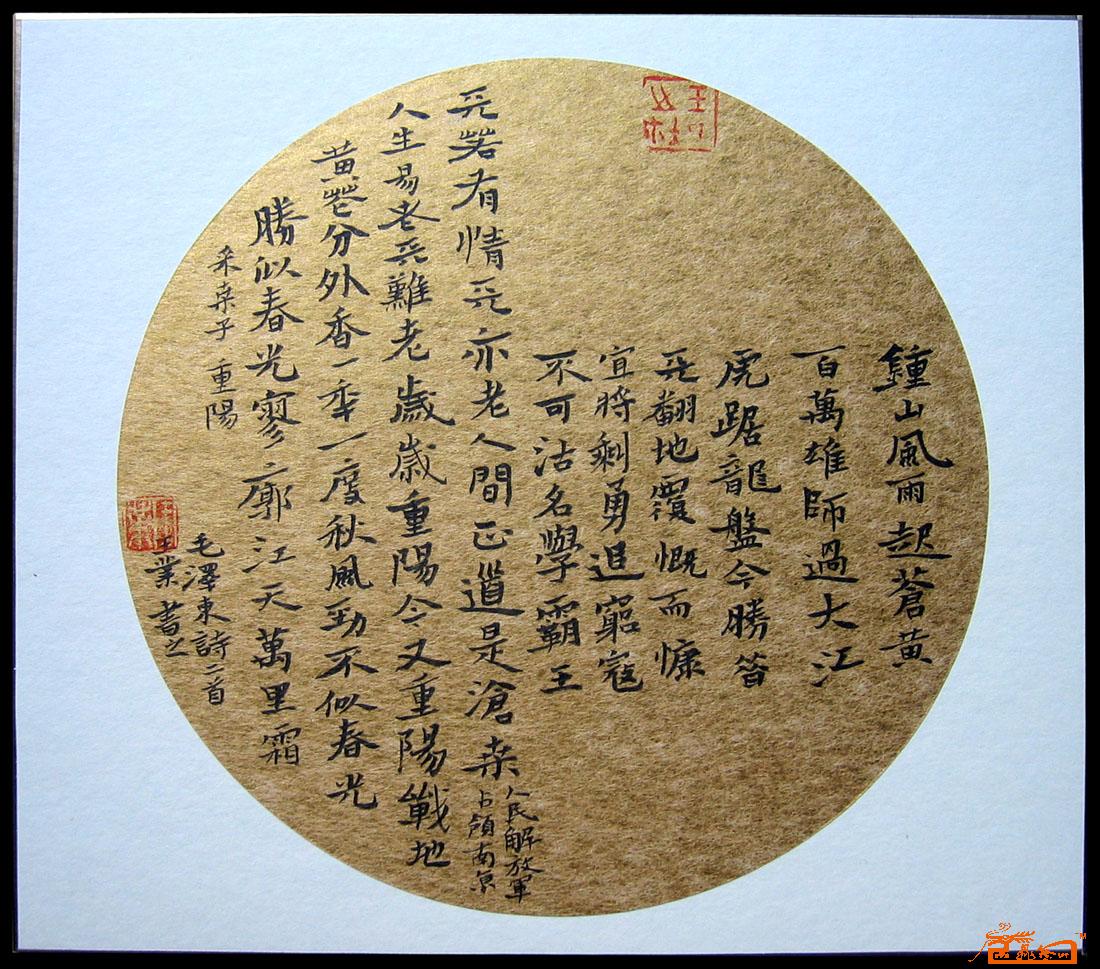 鍾山風雨起蒼黃
百萬雄師過大江
虎踞龍盤今勝昔
天翻地覆慨而慷
宜將剩勇追窮寇
不可沽名學霸王
天若有情天亦老人間正道是滄桒
人民解放軍
占領南京
人生易老天難老歲歲重陽今又重陽戰地
黃花分外香一年一度秋風勁不似春光
勝似春光寥廓江天萬里霜
采桒子 重陽
毛澤東詩二首
王業書之